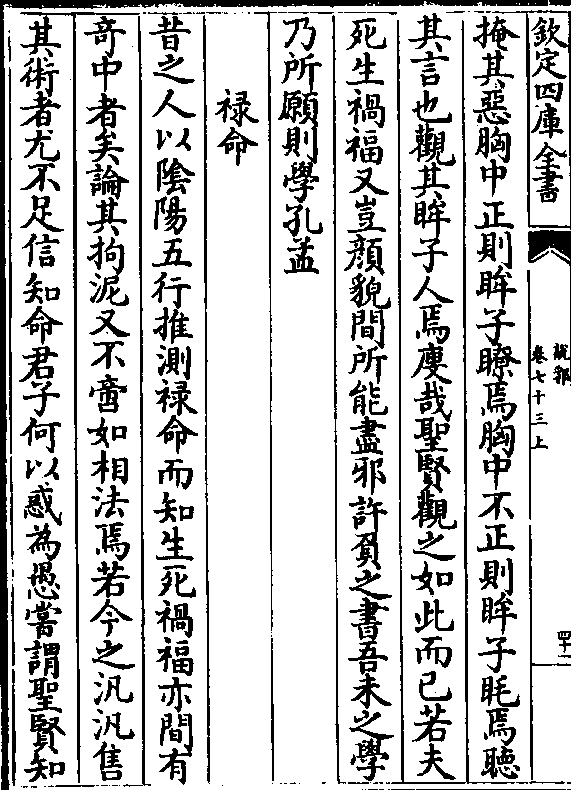 欽定四庫全書
說郛
卷七十三上
四十二
掩其惡胸中正則眸子瞭焉胸中不正則眸子眊焉聴
其言也觀其眸子人焉廋哉聖賢觀之如此而已若夫
死生禍福又豈顔貌間所能盡邪許負之書吾未之學
乃所願則學孔孟
禄命
昔之人以隂陽五行推測禄命而知生死禍福亦間有
竒中者矣論其拘泥又不啻如相法焉若今之汎汎售
其術者尤不足信知命君子何以惑為愚嘗謂聖賢知